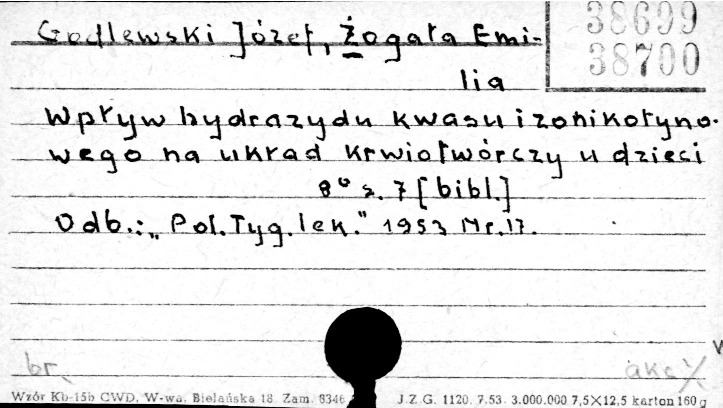 38699
38700
Godlewski Józef, Żogała Emi-
lia
Wpływ hydrazydu kwasu izonikotyno-
wego na układ krwiotwórczy u dzieci
8° s. 7 [bibl.]
Odb.: „Pol. Tyg. lek." 1953 Nr. 17.
br.
akc
Wzór Kb-15b CWD, W-wa, Bielańska 18. Zam. 8346
J.Z.G. 1120. 7.53. 3.000.000 7,5×12,5 karton 160 g